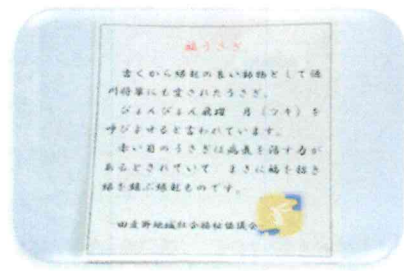 福うさぎ
古くから縁起の良い動物として徳
川将軍にも愛されたうさぎ。
ぴょんぴょん飛躍 月(ツキ)を
呼びよせると言われています。
赤い目のうさぎは病気を治す力が
あるとされていて まさに福を招き
縁を結ぶ縁起ものです。
地域社会福祉協議会